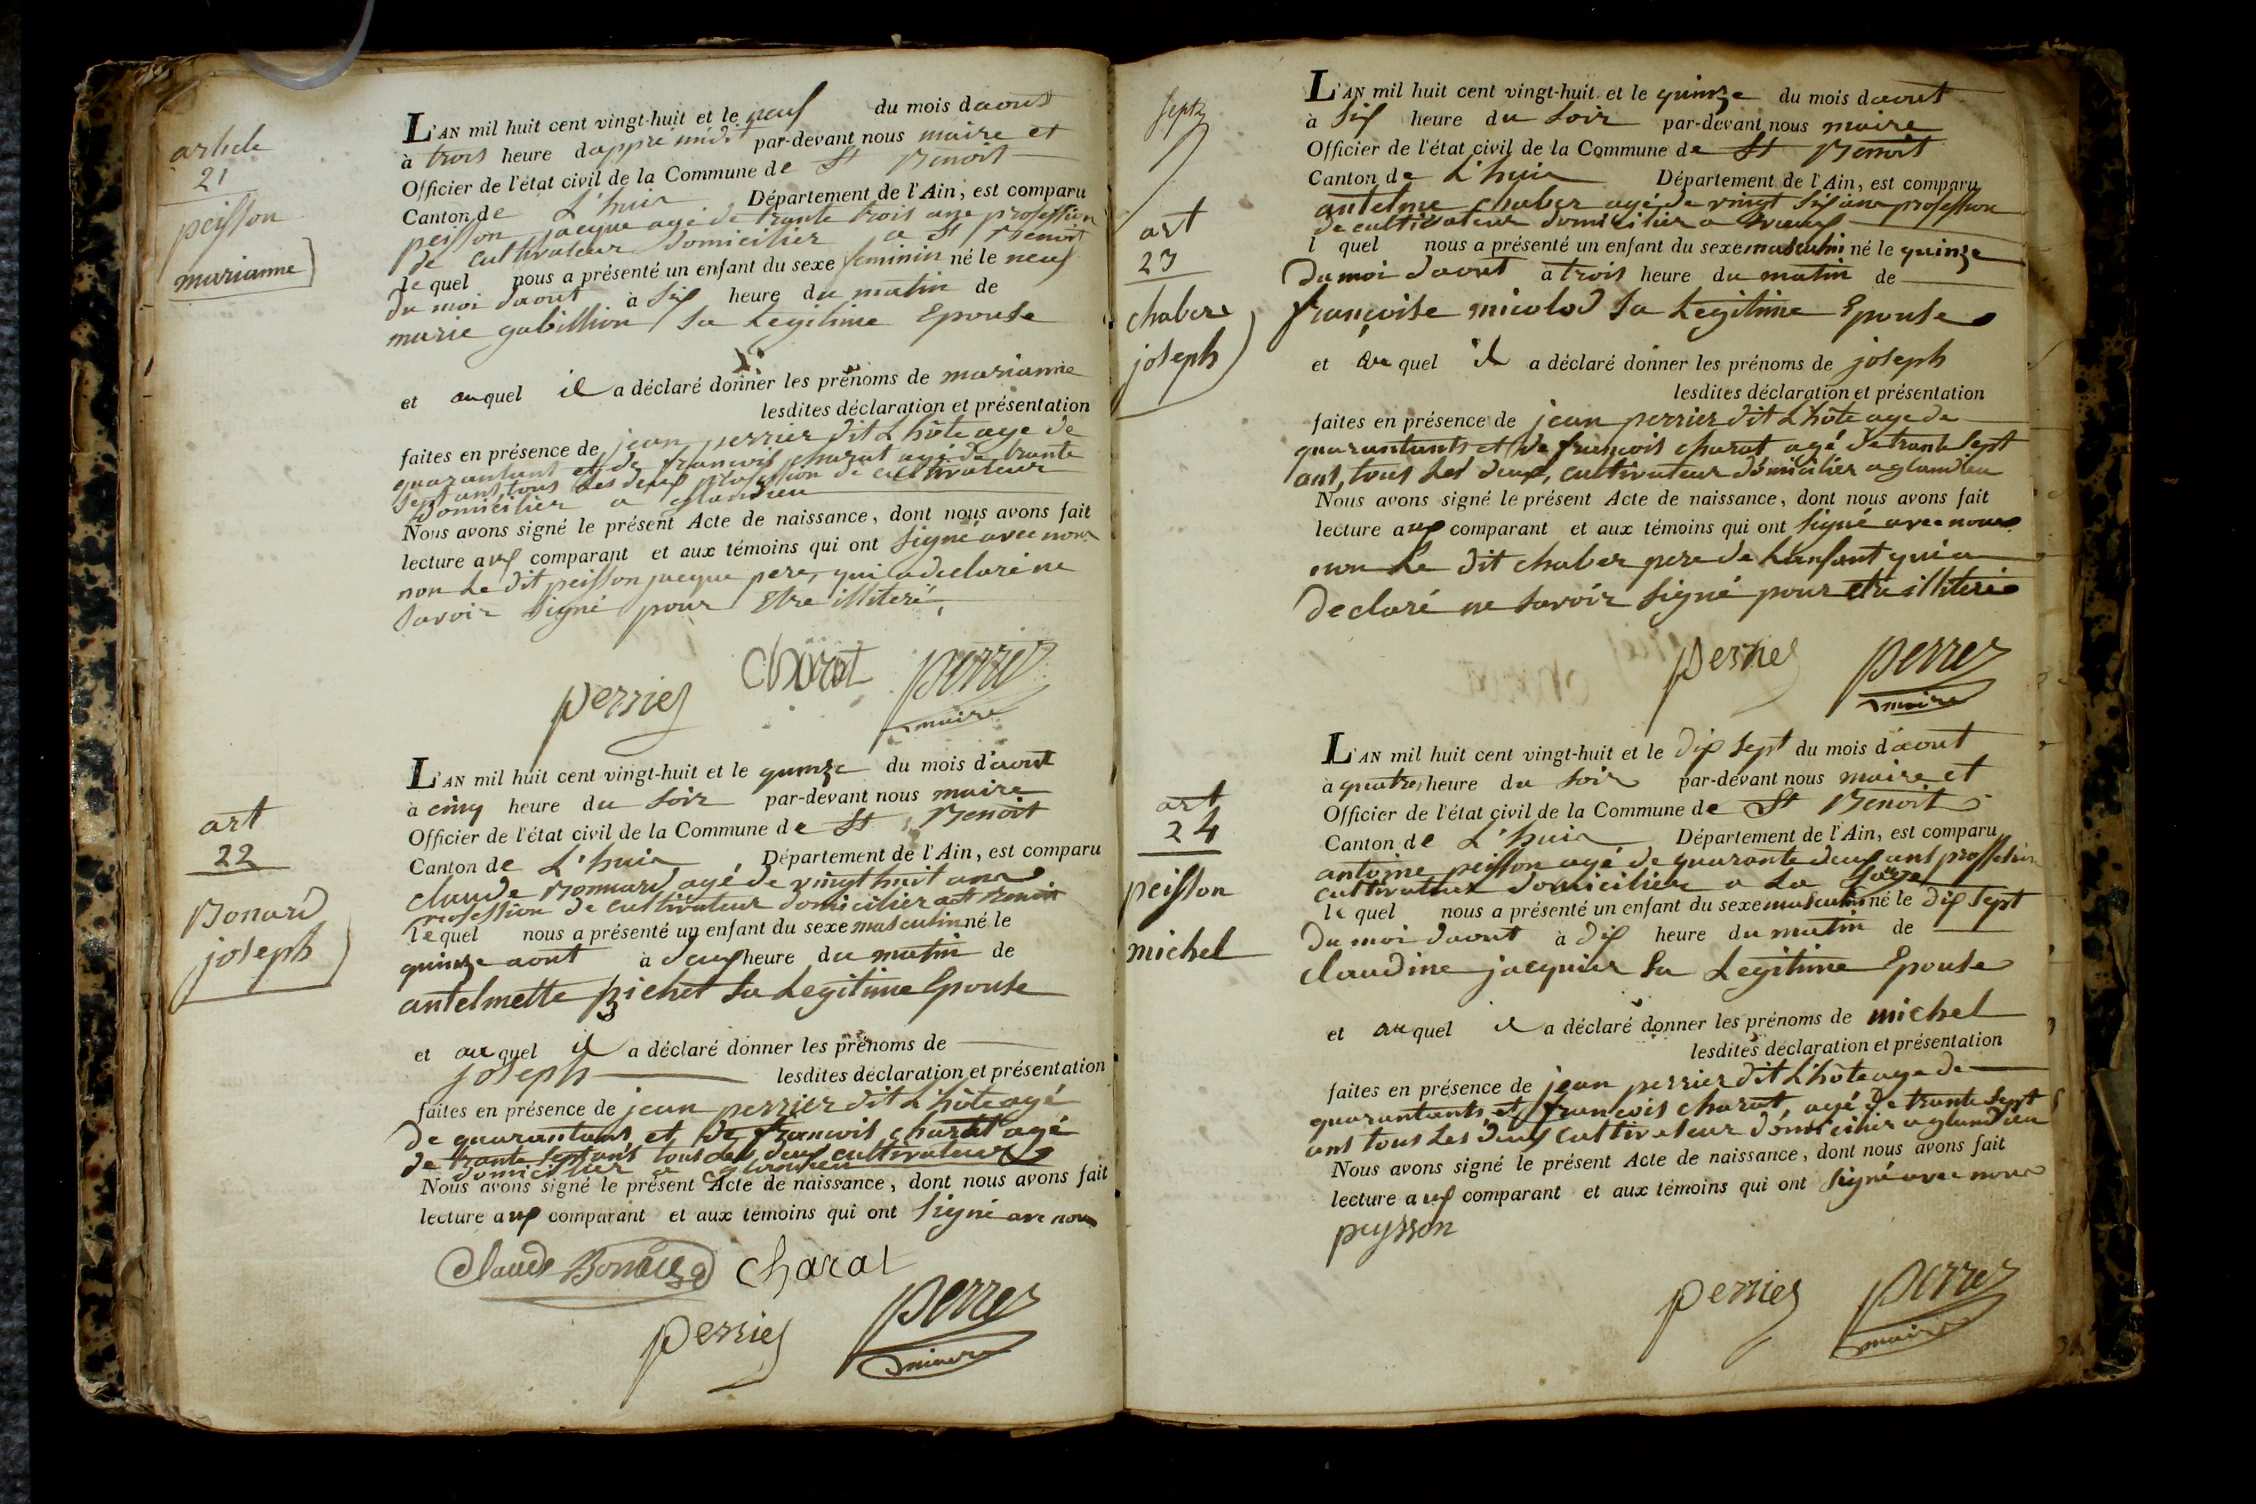 article
21
peisson
marianne
L'AN mil huit cent vingt-huit et le neuf du mois daout
à trois heure dappré midi par-devant nous maire et
Officier de l'état civil de la Commune de St Benoit
Canton de L'huis Département de l'Ain, est comparu
peisson jacque agé de trante trois ans profession
de cultivateur domicilier a St Benoit
lequel nous a présenté un enfant du sexe feminin né le neuf
du moi daout à six heure du matin de
marie gabillion sa Legitime Epouse
et auquel il a déclaré donner les prénoms de marianne
lesdites déclaration et présentation
faites en présence de jean perrier dit L'hôte age de
quarantans et de francois charat agé de trante
sept ans tous les deux profession de cultivateur
Domicilier a glandieu
Nous avons signé le présent Acte de naissance, dont nous avons fait
lecture aux comparant et aux témoins qui ont signé avec nous
non Le dit peisson jacque pere, qui a declaré ne
savoir signé pour Etre illiteré
perrier charat perrier
maire
art
22
Bonard
joseph
L'AN mil huit cent vingt-huit et le quinze du mois d'aout
à cinq heure du soir par-devant nous maire
Officier de l'état civil de la Commune de St Benoit
Canton de L'huis Département de l'Ain, est comparu
claude Bonnard agé de vingt huit ans
profession de cultivateur domicilier a St Benoit
lequel nous a présenté un enfant du sexe masculin né le
quinze aout à deux heure du matin de
antelmette pichet sa Legitime Epouse
et auquel il a déclaré donner les prénoms de
joseph lesdites déclaration et présentation
faites en présence de jean perrier dit L'hôte agé
de quarantans et de francois charat agé
de trante sept ans tous les deux cultivateur
domicilier a glandieu
Nous avons signé le présent Acte de naissance, dont nous avons fait
lecture aux comparant et aux témoins qui ont signé ave nous
Claude Bonard charat
perrier perrier
maire
art
23
chaber
joseph
L'AN mil huit cent vingt-huit et le quinze du mois daout
à six heure du soir par-devant nous maire
Officier de l'état civil de la Commune de St Benoit
Canton de L'huis Département de l'Ain, est comparu
antelme chaber agé de vingt six ans profession
de cultivateur domicilier a
l quel nous a présenté un enfant du sexe masculin né le quinze
du moi daout à trois heure du matin de
françoise micolod sa Legitime Epouse
et au quel il a déclaré donner les prénoms de joseph
lesdites déclaration et présentation
faites en présence de jean perrier dit L'hôte age de
quarantants et de françois charat agé de trante sept
ans, tous Les deux, cultivateur domicilier a glandieu
Nous avons signé le présent Acte de naissance, dont nous avons fait
lecture aux comparant et aux témoins qui ont signé avec nous
non Le dit chaber pere de Lanfant qui a
declaré ne savoir signé pour etre illiteré
perrier perrier
maire
art
24
peisson
michel
L'AN mil huit cent vingt-huit et le dix sept du mois d'aout
à quatre heure du soir par-devant nous maire et
Officier de l'état civil de la Commune de St Benoit
Canton de L'huis Département de l'Ain, est comparu
antoine peisson agé de quarante deux ans proffession
cultivateur domicilier a La
le quel nous a présenté un enfant du sexe masculin né le dix sept
du moi daout à dix heure du matin de
claudine jacquier sa Legitime Epouse
et auquel il a déclaré donner les prénoms de michel
lesdites déclaration et présentation
faites en présence de jean perrier dit L'hôte age de
quarantants et françois charat, agé de trante sept
ans tous Les deux cultivateur domicilier a glandieu
Nous avons signé le présent Acte de naissance, dont nous avons fait
lecture aux comparant et aux témoins qui ont signé avec nous
peysson
perrier perrier
maire